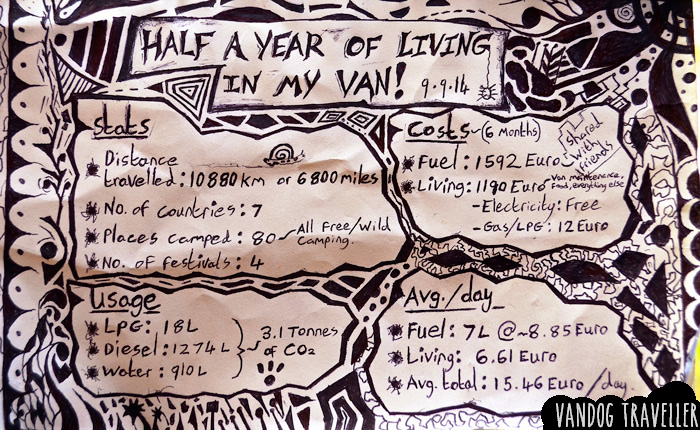 HALF A YEAR OF LIVING
IN MY VAN! 9.9.14
Stats
Distance
travelled: 10880km or 6800miles
No. of countries: 7
Places camped: 80 All Free/Wild
Camping.
No. of festivals: 4
Costs ~(6 months)
Fuel: 1592 Euro
shared
with
friends
Living: 1190 Euro Van maintenance,
food, everything else
- Electricity: Free
- Gas/LPG: 12 Euro
Usage
LPG: 18L
Diesel: 1274L
Water: 910L
3.1 Tonnes
of CO2
Avg./day
Fuel: 7L @ ~8.85 Euro
Living: 6.61 Euro
Avg. total: 15.46 Euro/day.
VANDOG TRAVELLER